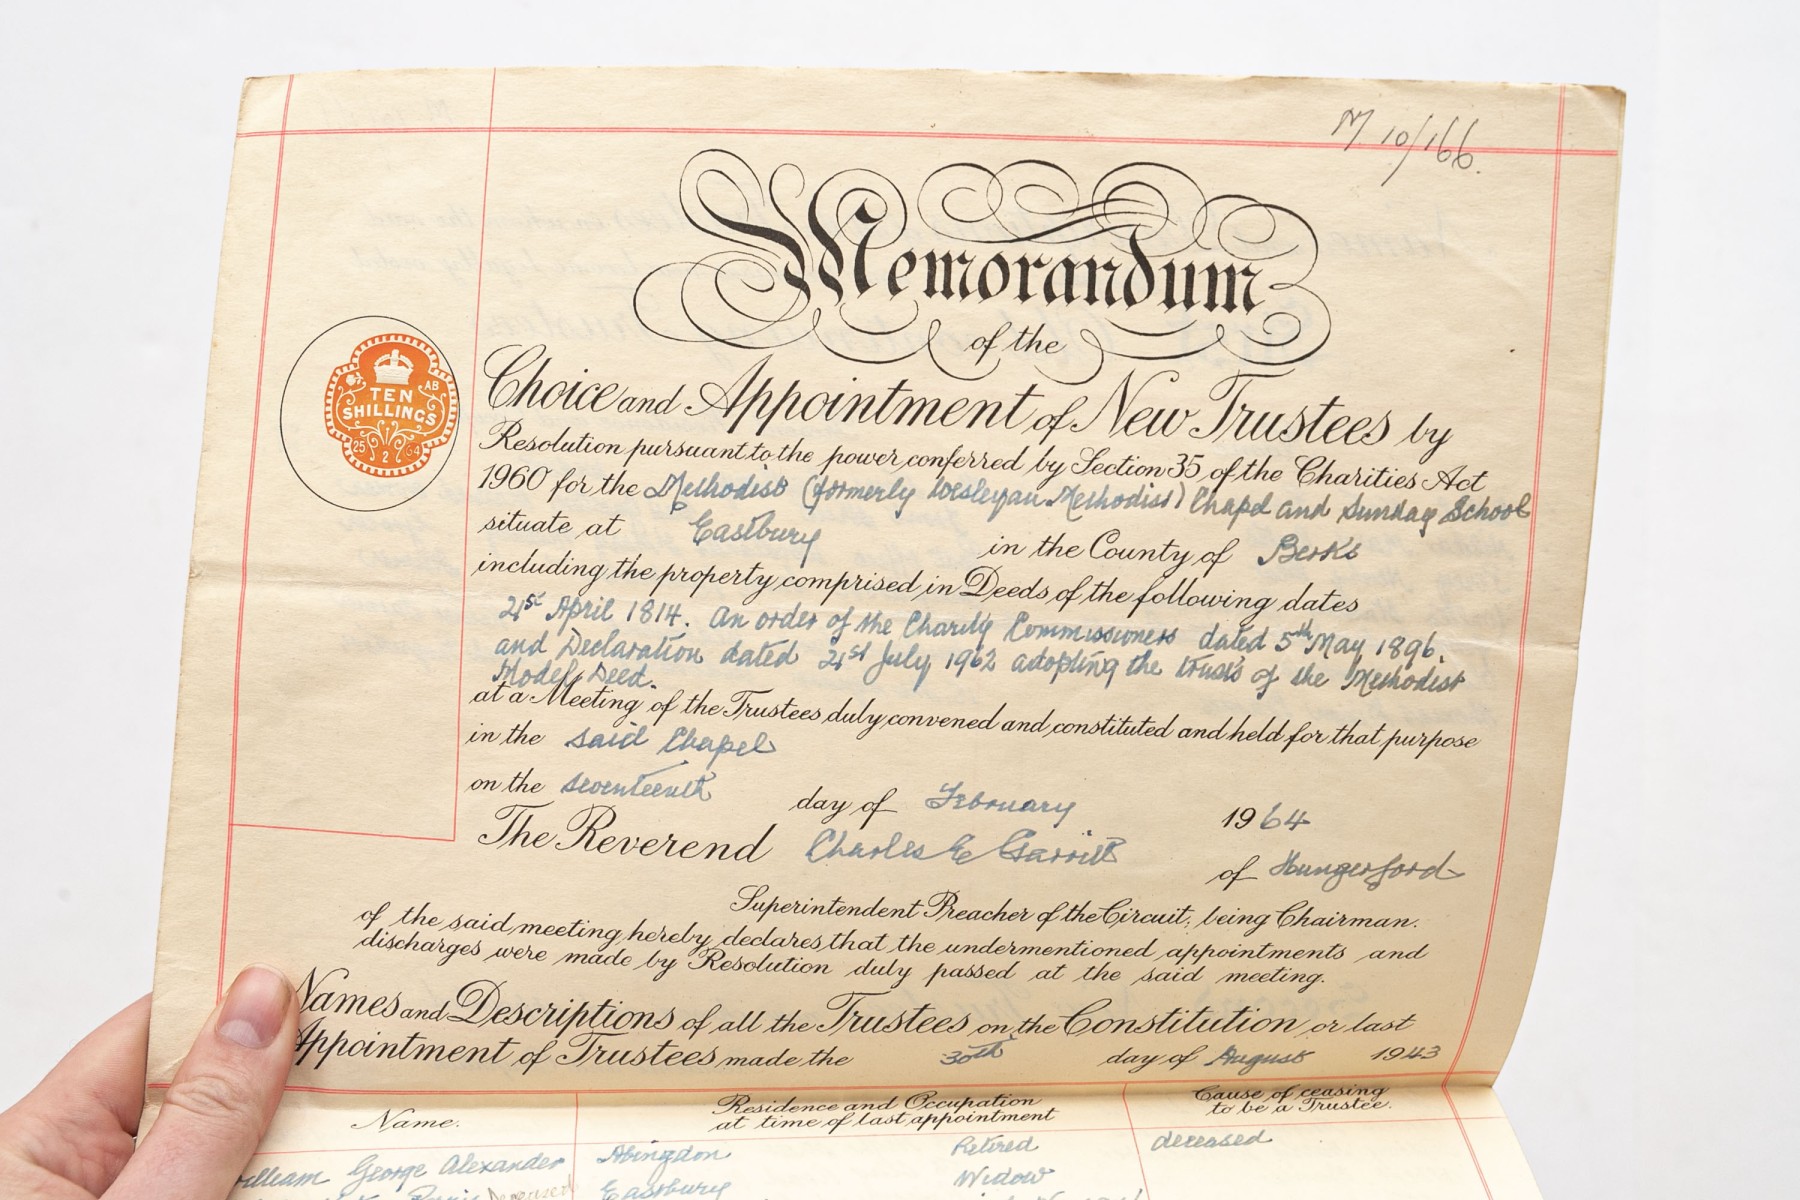 M 10/166.
Memorandum
of the
Choice and Appointment of New Trustees by
Resolution pursuant to the power conferred by Section 35 of the Charities Act
1960 for the Methodist (formerly Wesleyan Methodist) Chapel and Sunday School
situate at Eastbury in the County of Berks
including the property comprised in Deeds of the following dates
21st April 1814. An order of the Charity Commissioners dated 5th May 1896.
and Declaration dated 21st July 1962 adopting the trusts of the Methodist
Model Deed.
at a Meeting of the Trustees duly convened and constituted and held for that purpose
in the said Chapel
on the seventeenth day of February 1964
The Reverend Charles E Garritt of Hungerford
Superintendent Preacher of the Circuit, being Chairman.
of the said meeting hereby declares that the undermentioned appointments and
discharges were made by Resolution duly passed at the said meeting.
Names and Descriptions of all the Trustees on the Constitution or last
Appointment of Trustees made the 30th day of August 1943
TEN
SHILLINGS
AB
25 2 64
Name. Residence and Occupation Cause of ceasing
at time of last appointment to be a Trustee.
William George Alexander Abingdon Retired deceased
Deceased Eastbury Widow